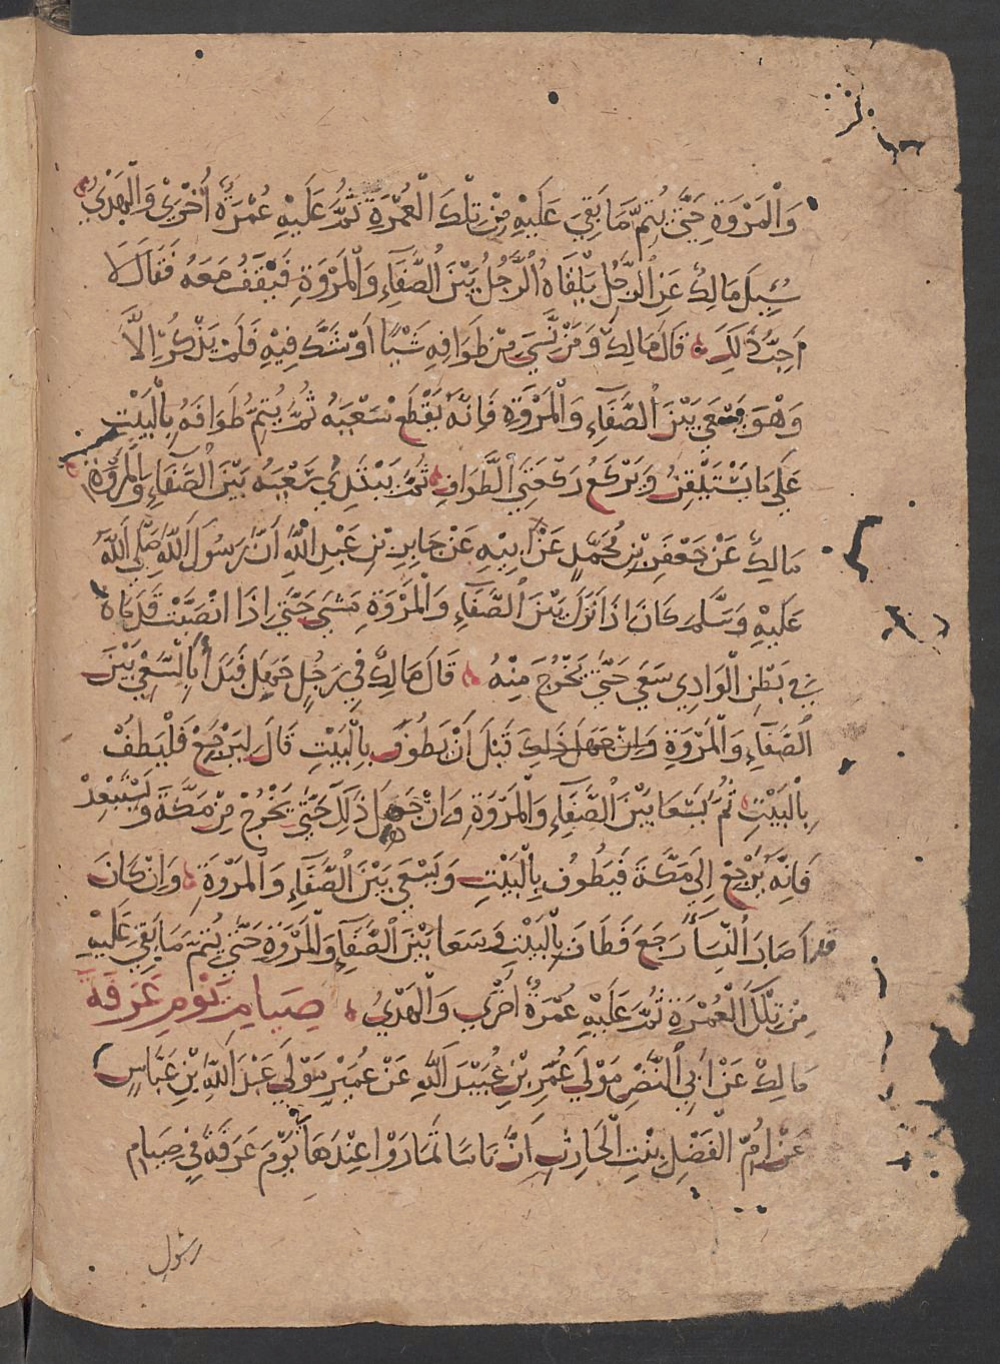 وَالْمَرْوَةِ حَتَّى يُتِمَّ مَا بَقِيَ عَلَيْهِ مِنْ تِلْكَ الْعُمْرَةِ ثُمَّ عَلَيْهِ عُمْرَةٌ أُخْرَى وَالْهَدْيُ
سُيِلَ مَالِكٌ عَنِ الرَّجُلِ يَلْقَاهُ الرَّجُلُ بَيْنَ الصَّفَاءِ وَالْمَرْوَةِ فَيَقِفُ مَعَهُ فَقَالَ لَا
أُحِبُّ ذَلِكَ قَالَ مَالِكٌ وَمَنْ نَسِيَ مِنْ طَوَافِهِ شَيْئًا أَوْ شَكَّ فِيهِ فَلَمْ يَذْكُرْ إِلَّا
وَهْوَ يَسْعَى بَيْنَ الصَّفَاءِ وَالْمَرْوَةِ فَإِنَّهُ يَقْطَعُ سَعْيَهُ ثُمَّ يُتِمُّ طَوَافَهُ بِالْبَيْتِ
عَلَى مَا يَسْتَيْقِنُ وَيَرْكَعُ رَكْعَتَيِ الطَّوَافِ ثُمَّ يَبْتَدِئُ سَعْيَهُ بَيْنَ الصَّفَاءِ وَالْمَرْوَةِ
مَالِكٌ عَنْ جَعْفَرِ بْنِ مُحَمَّدٍ عَنْ أَبِيهِ عَنْ جَابِرِ بْنِ عَبْدِ اللَّهِ أَنَّ رَسُولَ اللَّهِ صَلَّى اللَّهُ
عَلَيْهِ وَسَلَّمَ كَانَ إِذَا نَزَلَ بَيْنَ الصَّفَاءِ وَالْمَرْوَةِ مَشَى حَتَّى إِذَا انْصَبَّتْ قَدَمَاهُ
فِي بَطْنِ الْوَادِي سَعَى حَتَّى يَخْرُجَ مِنْهُ قَالَ مَالِكٌ فِي رَجُلٍ جَهِلَ فَبَدَأَ بِالسَّعْيِ بَيْنَ
الصَّفَاءِ وَالْمَرْوَةِ وَإِنْ جَهِلَ ذَلِكَ قَبْلَ أَنْ يَطُوفَ بِالْبَيْتِ قَالَ لِيَرْجِعْ فَلْيَطُفْ
بِالْبَيْتِ ثُمَّ يَسْعَا بَيْنَ الصَّفَاءِ وَالْمَرْوَةِ وَإِنْ جَهِلَ ذَلِكَ حَتَّى يَخْرُجَ مِنْ مَكَّةَ وَيَسْتَبْعِدْ
فَإِنَّهُ يَرْجِعُ إِلَى مَكَّةَ فَيَطُوفُ بِالْبَيْتِ وَيَسْعَى بَيْنَ الصَّفَاءِ وَالْمَرْوَةِ وَإِنْ كَانَ
قد أَصَابَ النِّسَاءَ رَجَعَ فَطَافَ بِالْبَيْتِ وَسَعَا بَيْنَ الصَّفَاءِ وَالْمَرْوَةِ حَتَّى يُتِمَّ مَا بَقِيَ عَلَيْهِ
مِنْ تِلْكَ الْعُمْرَةِ ثُمَّ عَلَيْهِ عُمْرَةٌ أُخْرَى وَالْهَدْيُ صِيَامُ يَوْمِ عَرَفَةَ
مَالِكٌ عَنْ أَبِي النَّضْرِ مَوْلَى عُمَرَ بْنِ عُبَيْدِ اللَّهِ عَنْ عُمَيْرٍ مَوْلَى عَبْدِ اللَّهِ بْنِ عَبَّاسٍ
عَنْ أُمِّ الْفَضْلِ بِنْتِ الْحَارِثِ أَنَّ نَاسًا تَمَارَوْا عِنْدَهَا يَوْمَ عَرَفَةَ فِي صِيَامِ
رسول